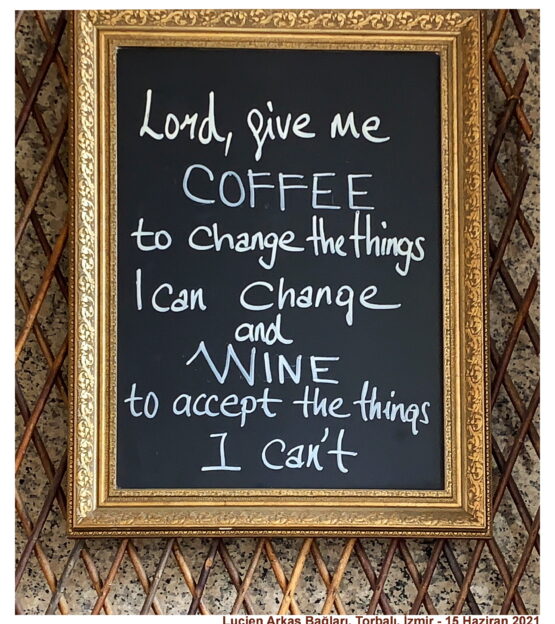 Lord, give me
COFFEE
to change the things
I can change
and
WINE
to accept the things
I can't
Lucien Arkas Bağları, Torbalı, İzmir - 15 Haziran 2021